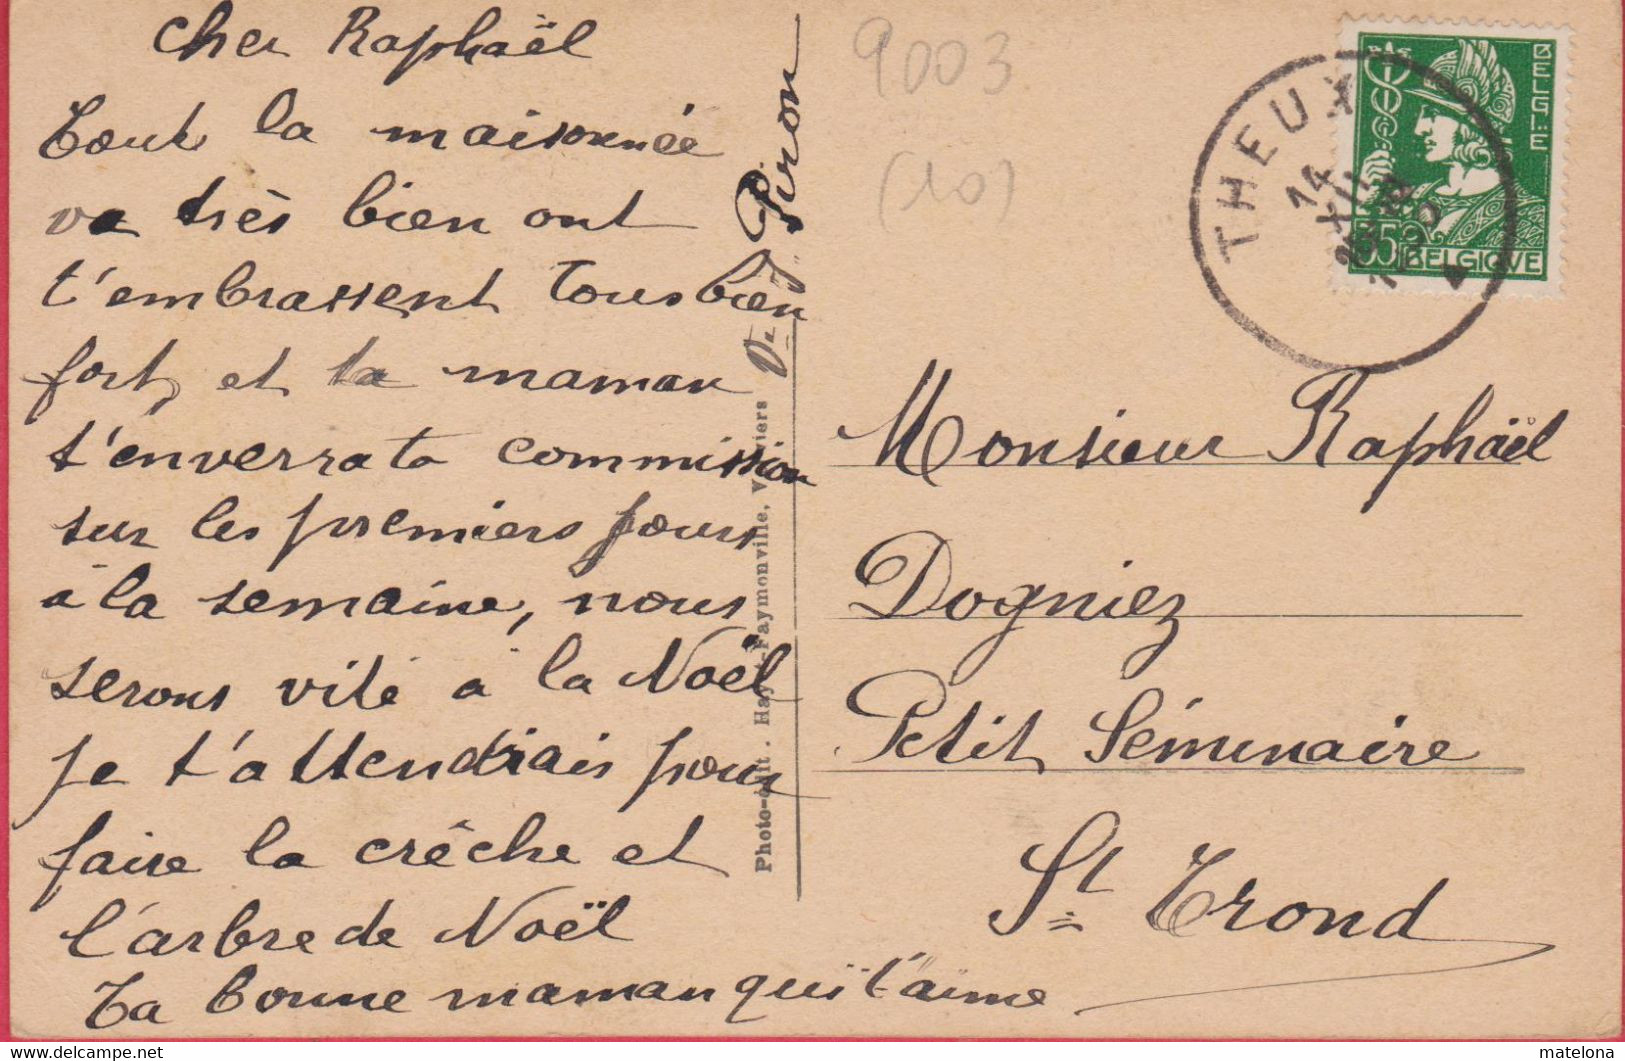 cher Raphaël
Toute la maisonnée
va très bien ont
t'embrassent tous bien
fort, et ta maman
t'enverrata commission
sur les premiers jours
à la semaine, nous
serons vite à la Noël
je t'attendrais pour
faire la crèche et
l'arbre de Noël
Ta bonne maman qui t'aime
Piron
Photo-édit. Hayot-Faymonville, Verviers
9003
(10)
THEUX
14
XII
BELGIE
35
BELGIQUE
Monsieur Raphaël
Dogniez
Petit Séminaire
St Trond
matelona